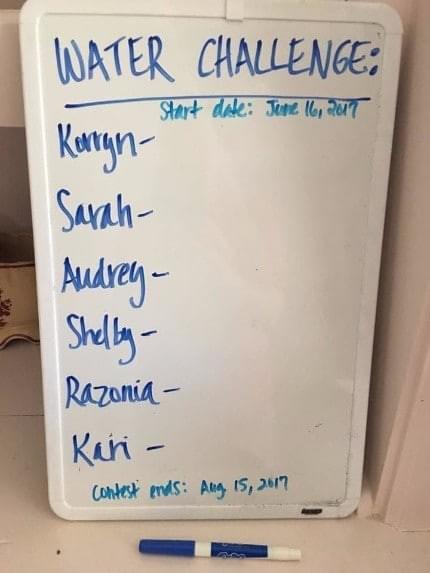 WATER CHALLENGE:
Start date: June 16, 2017
Korryn-
Sarah-
Audrey-
Shelby-
Razonia-
Kari-
Contest ends: Aug 15, 2017